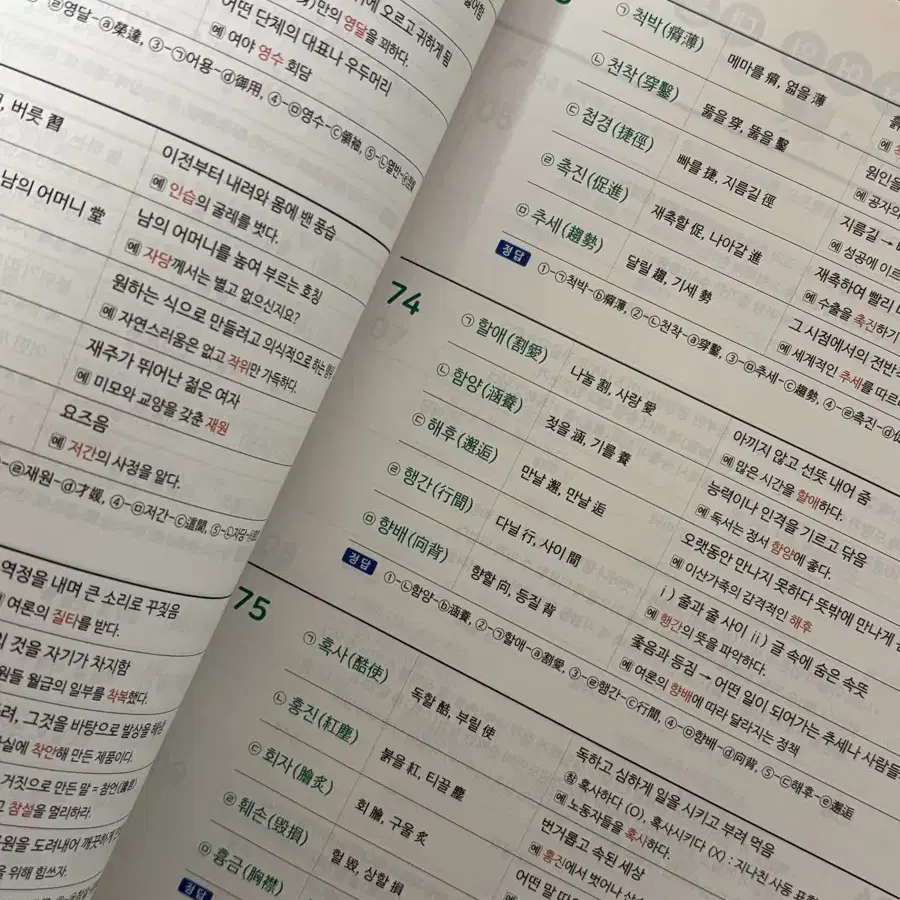 영달-ⓐ榮達, ③-㉠어용-ⓓ御用, ④-㉤영수-ⓒ領袖, ⑤-㉡열반-ⓔ
에 오르고 귀하게 됨
만의 영달을 꾀하다.
어떤 단체의 대표나 우두머리
예 여야 영수 회담
버릇 習
이전부터 내려와 몸에 밴 풍습
예 인습의 굴레를 벗다.
남의 어머니 堂
남의 어머니를 높여 부르는 호칭
예 자당께서는 별고 없으신지요?
원하는 식으로 만들려고 의식적으로 하는
예 자연스러움은 없고 작위만 가득하다.
재주가 뛰어난 젊은 여자
예 미모와 교양을 갖춘 재원
요즈음
예 저간의 사정을 알다.
㉣재원-ⓓ才媛, ④-㉤저간-ⓒ這間, ⑤-㉡자당
역정을 내며 큰 소리로 꾸짖음
예 여론의 질타를 받다.
것을 자기가 차지함
원들 월급의 일부를 착복했다.
그것을 바탕으로 발상을
실에 착안해 만든 제품이다.
거짓으로 만든 말 = 참언(讒言)
참설을 멀리하라.
원을 도려내어 깨끗하게
을 위해 힘쓰자.
㉠ 척박(瘠薄)
메마를 瘠, 엷을 薄
㉡ 천착(穿鑿)
뚫을 穿, 뚫을 鑿
원인을
예 공자의
㉢ 첩경(捷徑)
빠를 捷, 지름길 徑
지름길 →
예 성공에 이르
㉣ 촉진(促進)
재촉할 促, 나아갈 進
재촉하여 빨리
예 수출을 촉진하기
㉤ 추세(趨勢)
달릴 趨, 기세 勢
그 시점에서의 전반적
예 세계적인 추세를 따르
정답 ①-㉠척박-ⓑ瘠薄, ②-㉡천착-ⓐ穿鑿, ③-㉤추세-ⓒ趨勢, ④-㉣촉진-ⓓ促
74
㉠ 할애(割愛)
나눌 割, 사랑 愛
아끼지 않고 선뜻 내어 줌
예 많은 시간을 할애하다.
㉡ 함양(涵養)
젖을 涵, 기를 養
능력이나 인격을 기르고 닦음
예 독서는 정서 함양에 좋다.
㉢ 해후(邂逅)
만날 邂, 만날 逅
오랫동안 만나지 못하다 뜻밖에 만나게
예 이산가족의 감격적인 해후
㉣ 행간(行間)
다닐 行, 사이 間
ⅰ) 줄과 줄 사이 ⅱ) 글 속에 숨은 속뜻
예 행간의 뜻을 파악하다.
㉤ 향배(向背)
향할 向, 등질 背
좇음과 등짐 → 어떤 일이 되어가는 추세나 사람들
예 여론의 향배에 따라 달라지는 정책
정답 ①-㉡함양-ⓑ涵養, ②-㉠할애-ⓐ割愛, ③-㉣행간-ⓒ行間, ④-㉤향배-ⓓ向背, ⑤-㉢해후-ⓔ邂逅
75
㉠ 혹사(酷使)
독할 酷, 부릴 使
독하고 심하게 일을 시키고 부려 먹음
참 혹사하다 (O), 혹사시키다 (X) : 지나친 사동 표
예 노동자들을 혹사하다.
㉡ 홍진(紅塵)
붉을 紅, 티끌 塵
번거롭고 속된 세상
예 홍진에서 벗어나
㉢ 회자(膾炙)
회 膾, 구울 炙
어떤 말
㉣ 훼손(毁損)
헐 毁, 상할 損
㉤ 흉금(胸襟)
정답